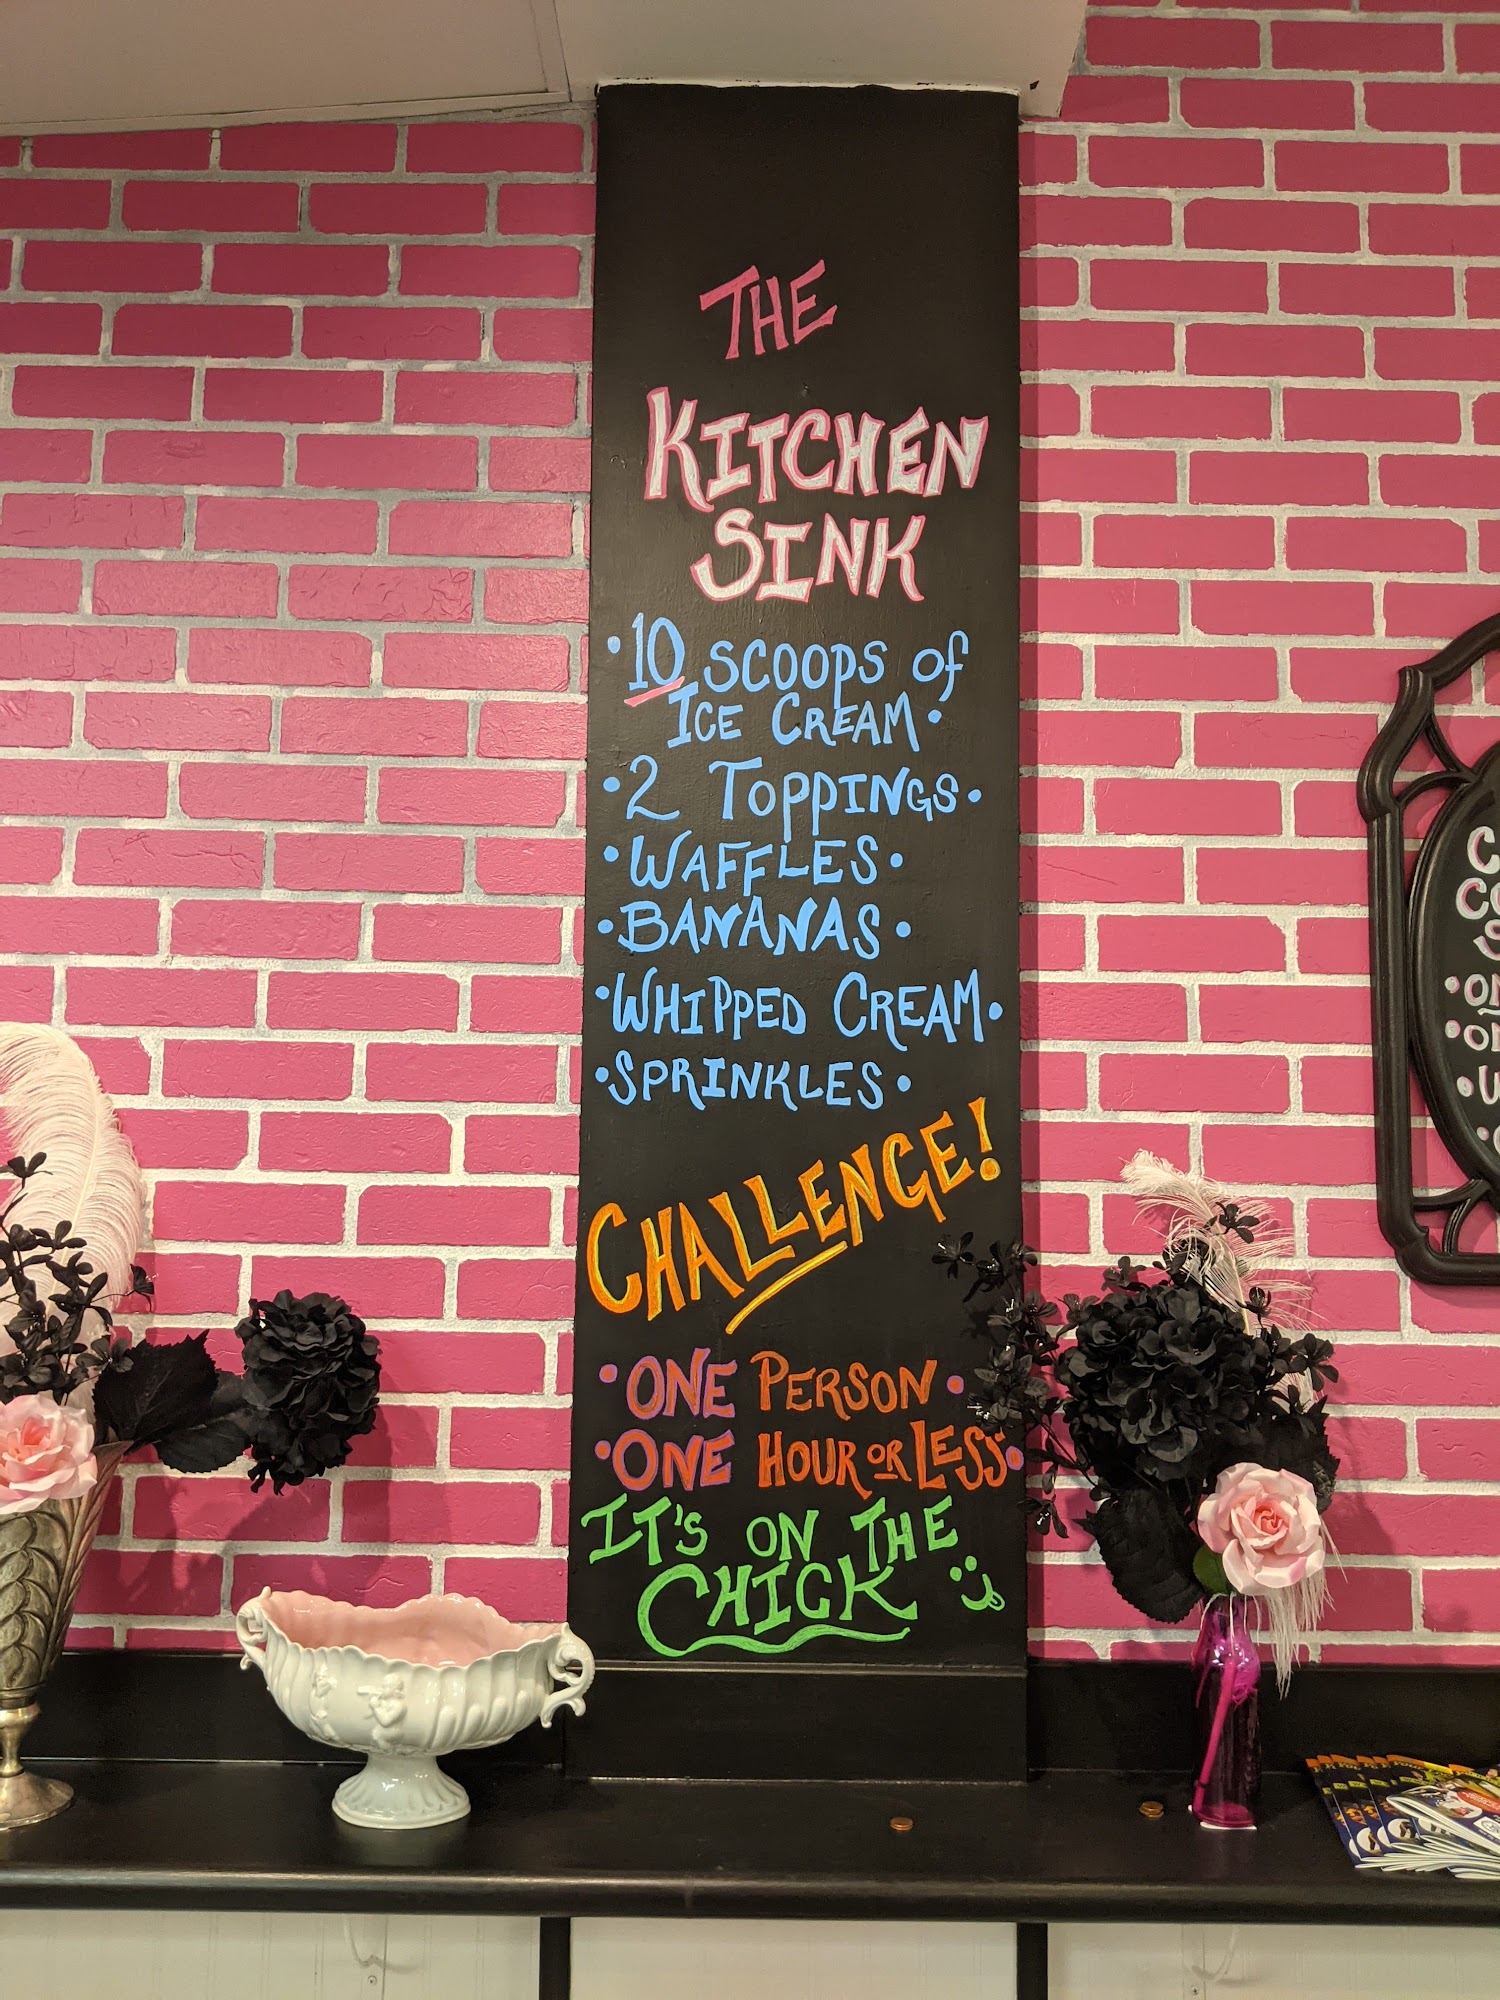 THE
KITCHEN
SINK
• 10 SCOOPS of
ICE CREAM •
• 2 TOPPINGS •
• WAFFLES •
• BANANAS •
• WHIPPED CREAM •
• SPRINKLES •
CHALLENGE!
• ONE PERSON •
• ONE HOUR OR LESS •
IT'S ON THE
CHICK